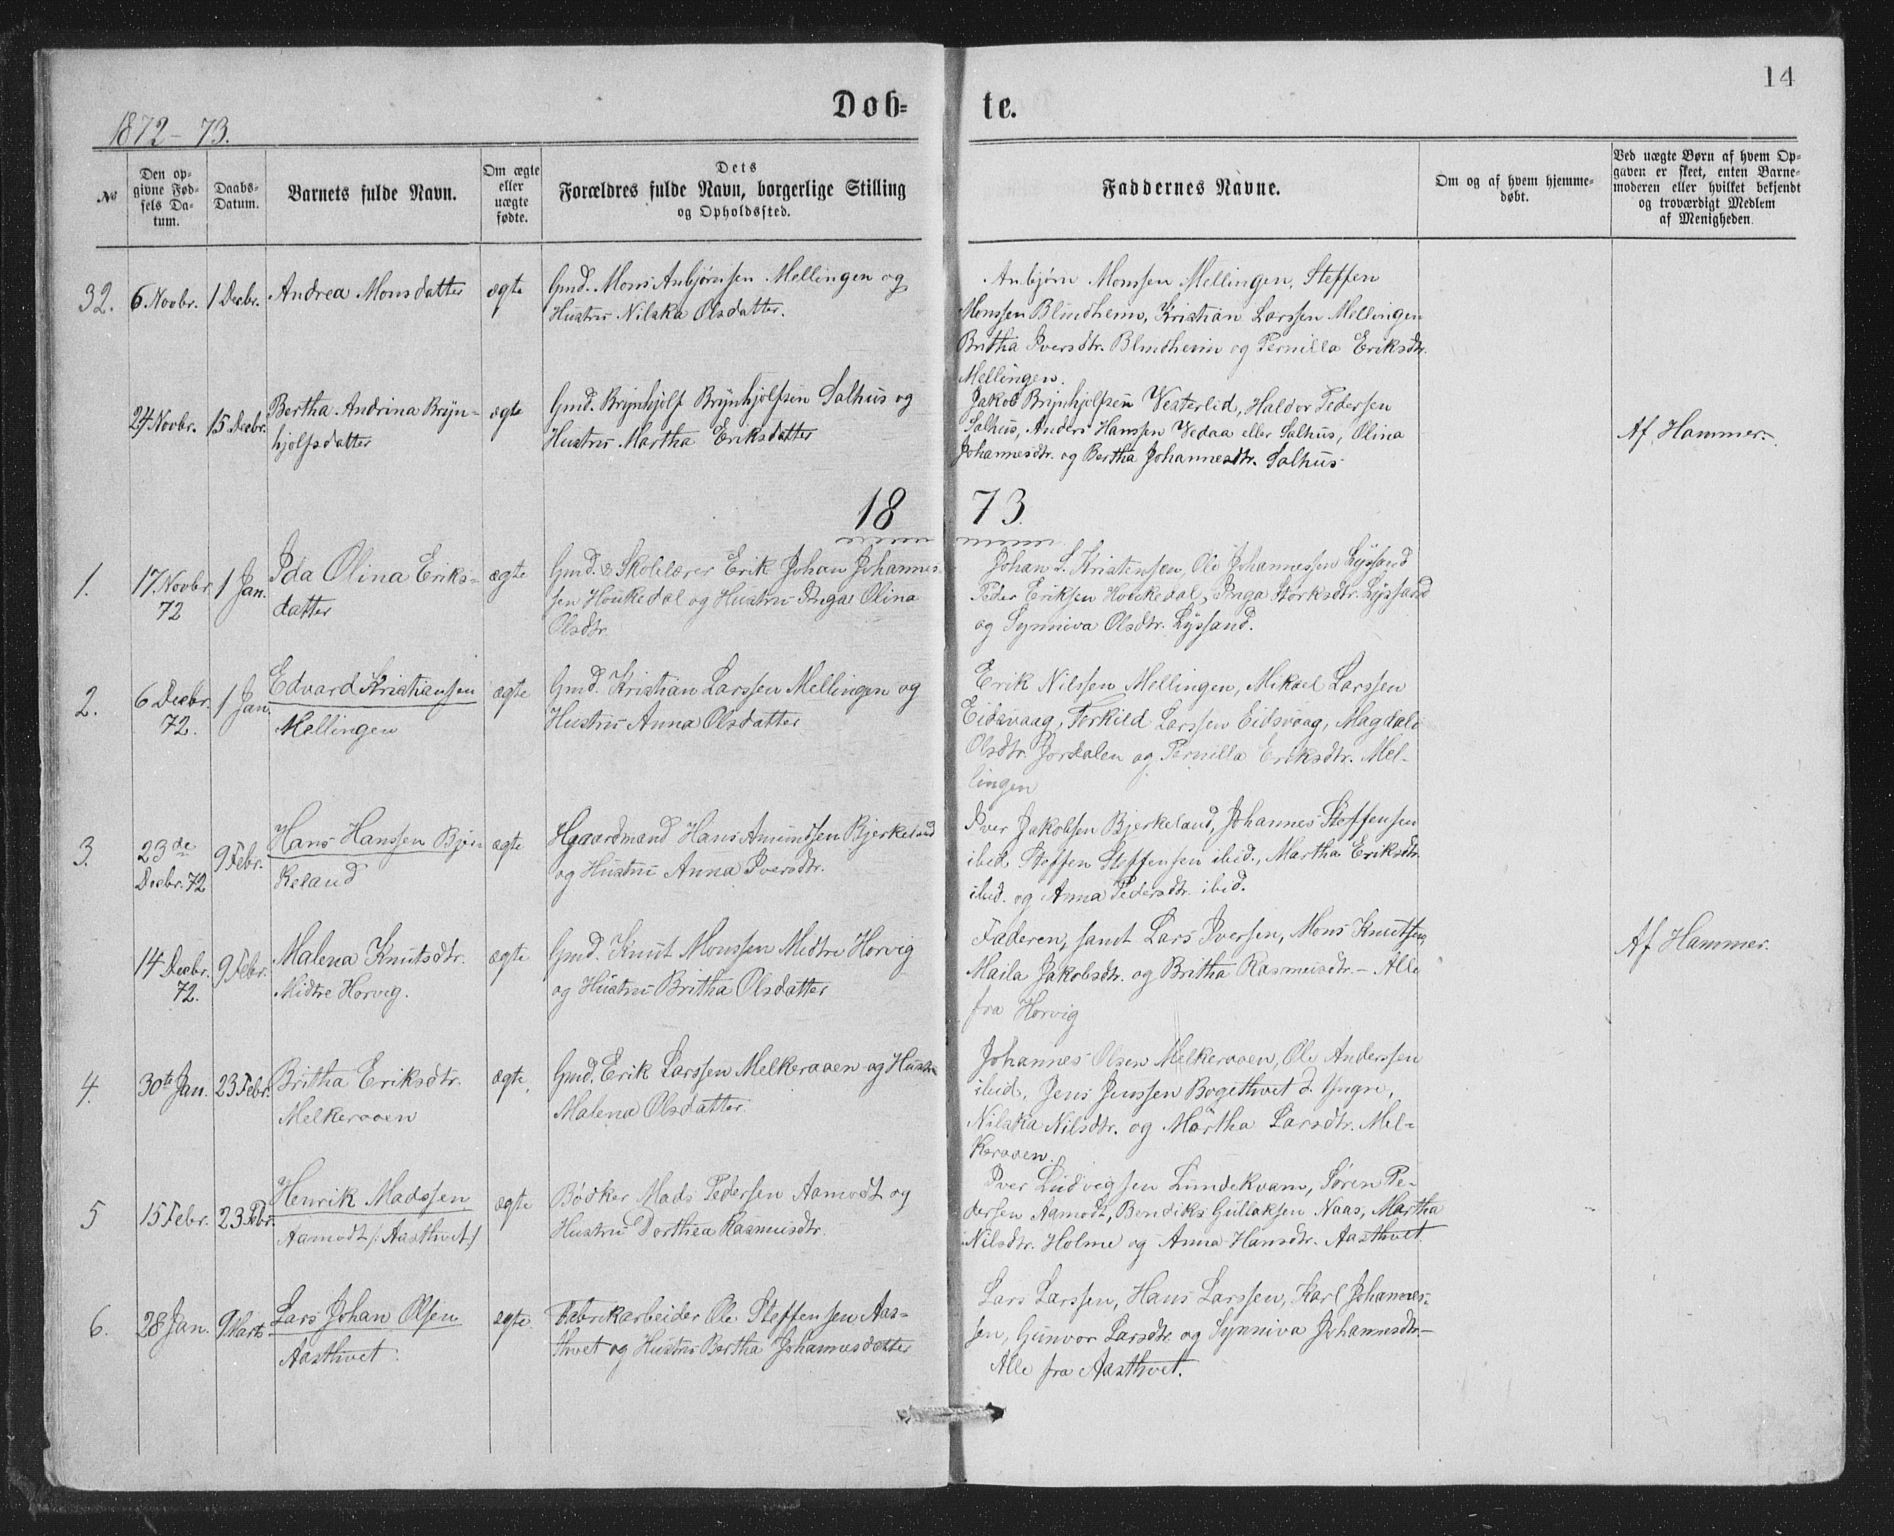 14
Døb-
te.
1872-73.
№
Den op-
givne Fød-
sels Da-
tum.
Daabs-
Datum.
Barnets fulde Navn.
Om ægte
eller
uægte
fødte.
Dets
Forældres fulde Navn, borgerlige Stilling
og Opholdssted.
Faddernes Navne.
Om og af hvem hjemme-
døbt.
Ved uægte Børn af hvem Op-
gaven er skeet, enten Barne-
moderen eller hvilket bekjendt
og troværdigt Medlem
af Menigheden.
32. 6 Novbr. 1 Decbr. Andrea Monsdatter ægte
Gmd. Mons Anbjørnsen Mellingen og
Hustru Nilska Olsdatter.
Anbjørn Monssen Mellingen, Steffen
Monssen Blindheim, Kristian Larssen Mellingen
Britha Iversdtr. Blindheim og Pernilla Eriksdtr.
Mellingen.
24 Novbr. 15 Decbr. Bertha Andrina Bryn-
hjolfsdatter
ægte
Gmd. Brynhjolf Brynhjolfsen Salhus og
Hustru Martha Eriksdatter
Jakob Brynhjolfsen Vesterlid, Haldor Pedersen
Salhus, Anders Hanssen Vedaa eller Salhus, Olina
Johannesdtr. og Bertha Johannesdtr. Salhus
Af Hammer.
1873.
1. 17 Novbr 72 1 Jan. Ida Olina Eriks-
datter
ægte
Gmd. & Skolelærer Erik Johan Johannes-
sen Houkedal og Hustru Inga Olina
Olsdtr.
Johan L. Kristensen, Ole Johannessen Lyssand
Peder Eriksen Houkedal, Inga Størksdtr. Lyssand
og Synniva Olsdtr. Lyssand.
2. 6 Decbr. 72. 1 Jan. Edvard Kristiansen
Mellingen
ægte
Gmd. Kristian Larssen Mellingen og
Hustru Anna Olsdatter
Erik Nilssen Mellingen, Mikael Larssen
Eidsvaag, Terkild Larssen Eidsvaag, Magdali
Olsdtr. Jordalen og Pernilla Eriksdtr. Mel-
lingen
3. 23de Decbr. 72 9 Febr. Hans Hanssen Bjer-
keland
ægte
Hgaardmand Hans Amundsen Bjerkeland
og Hustru Anna Iversdtr.
Iver Jakobsen Bjerkeland, Johannes Steffensen
ibid. Steffen Steffensen ibid., Martha Eriksdtr.
ibid. og Anna Pedersdtr. ibid.
14 Decbr. 72. 9 Febr. Malena Knutsdtr.
Midtre Horvig.
ægte
Gmd. Knut Monssen Midtre Horvig
og Hustru Britha Olsdatter
Faderen, samt Lars Iversen, Mons Knutsen
Maila Jakobsdtr. og Britha Rasmusdtr. - Alle
fra Horvig
Af Hammer.
4. 30te Jan. 23 Febr. Britha Eriksdtr.
Melkeraaen
ægte.
Gmd. Erik Larssen Melkeraaen og Hustru
Malena Olsdatter
Johannes Olsen Melkeraaen, Ole Anderssen
ibid., Jens Jenssen Bogethvet d. Yngre,
Nilska Nilsdtr. og Martha Larsdtr. Mel-
keraaen.
5 15 Febr. 23 Febr. Henrik Madssen
Aamodt /: Aasthvet :/
ægte
Bødker Mads Pedersen Aamodt og
Hustru Dorthea Rasmusdtr.
Iver Ludvigsen Lundekvam, Søren Pe-
dersen Aamodt, Bendiks Gullaksen Naas, Martha
Nilsdtr. Holme og Anna Hansdtr. Aasthvet
6. 28 Jan. 9 Marts Lars Johan Olsen
Aasthvet.
ægte
Fabrikarbeider Ole Steffensen Aas-
thvet og Hustru Bertha Johannesdatter
Lars Larssen, Hans Larssen, Karl Johannes-
sen, Gunvor Larsdtr. og Synniva Johannesdtr. -
Alle fra Aasthvet.